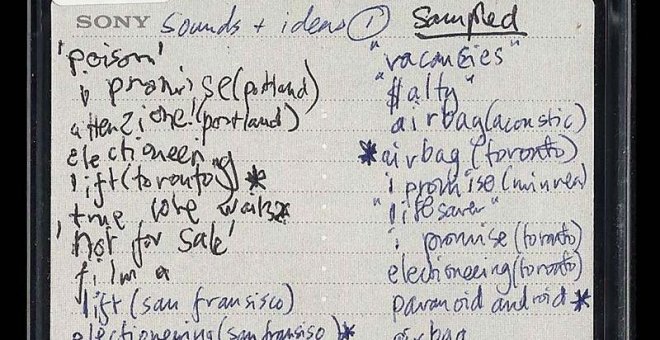 SONY sounds + ideas ① sampled
'poison'
i promise (portland)
attenzione! (portland)
electioneering
lift (toronto) *
true love waits *
'not for sale'
film a
lift (san fransisco)
electioneering (san fransiso) *
"vacancies"
"$alty"
airbag (acoustic)
*airbag (toronto)
i promise
"lifesaver"
i promise (toronto)
electioneering (toronto)
paranoid android *
airbag